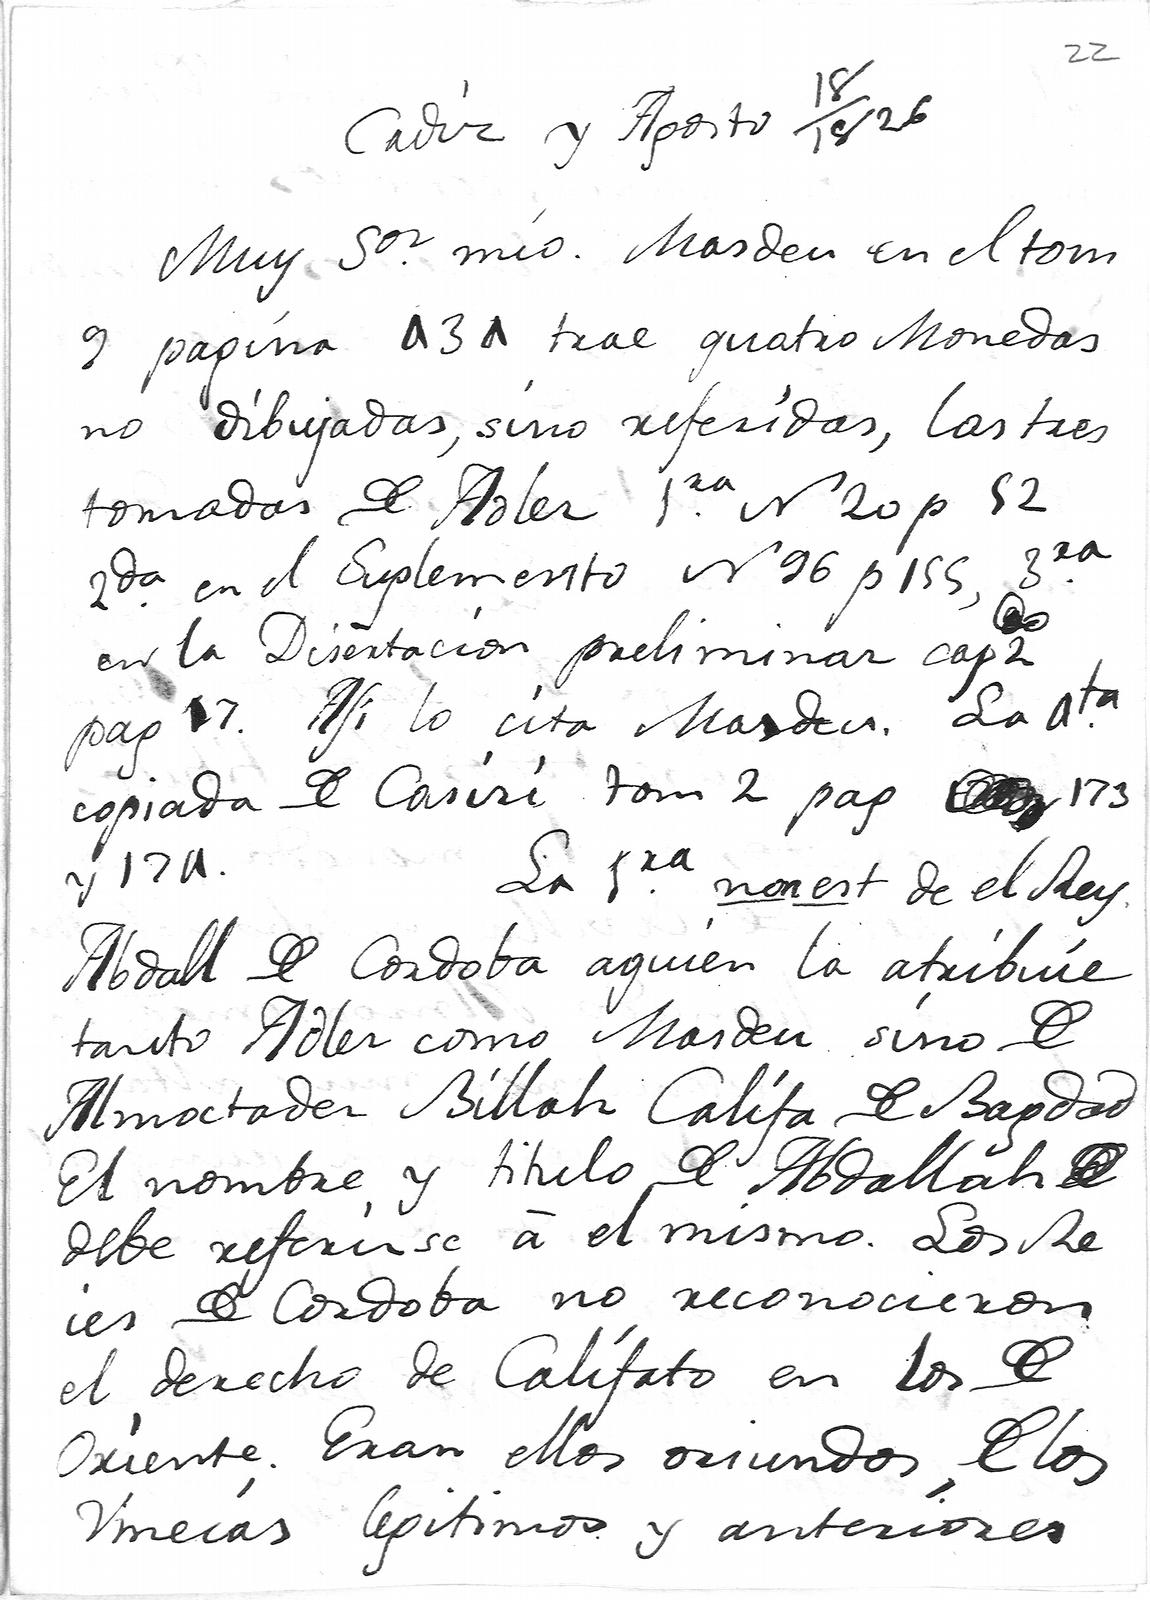 22
Cadiz y Agosto 18/1826
Muy Sor. mio. Masdeu en el tom
9 pagina 131 trae quatro Monedas
no dibujadas, sino referidas, las tres
tomadas de Adler 1.ra N 20 p 52
2.da en el Suplemento N 96 p 155, 3.ra
en la Disertacion preliminar cap 2
pag 17. Asi lo cita Masdeu. La 4.ta
copiada de Casiri tom 2 pag 173
y 174. La 1.ra non est de el Rey
Abdall de Cordoba aquien la atribuie
tanto Adler como Masdeu sino de
Almoctader Billah Califa de Bagdad
El nombre y titulo de Abdallah
debe referirse â el mismo. Los Re
ies de Cordoba no reconocieron
el derecho de Califato en los de
Oriente. Eran ellos oriundos de los
Vmeias legitimos y anteriores